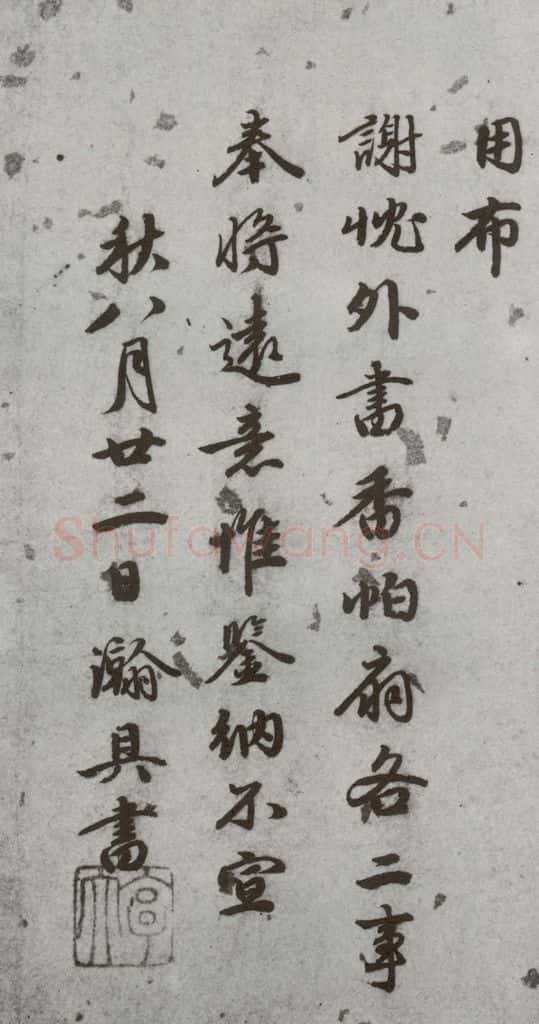 用布
謝悅外書香帕扇各二事
奉將遠意惟鑒納不宣
秋八月廿二日瀚具書
Shufawang.CN